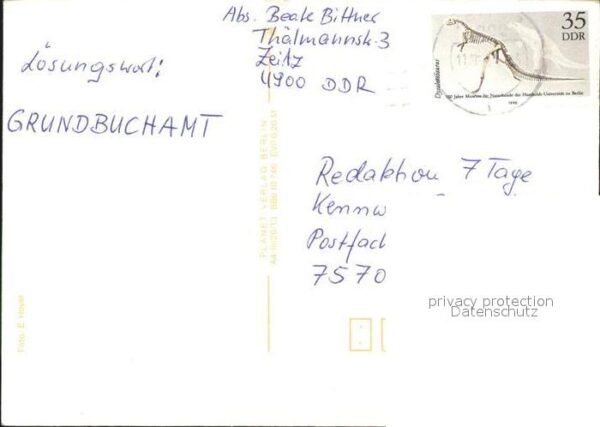 Abs. Beate Bittner
Thälmannstr. 3
Zeitz
4900 DDR
Lösungswort:
GRUNDBUCHAMT
35
DDR
Dysalotosaurus
100 Jahre Museum für Naturkunde der Humboldt-Universität zu Berlin
1990
Redaktion 7 Tage
Kennw
Postfach
7570
PLANET VERLAG BERLIN
Foto: E. Höyer
privacy protection
Datenschutz